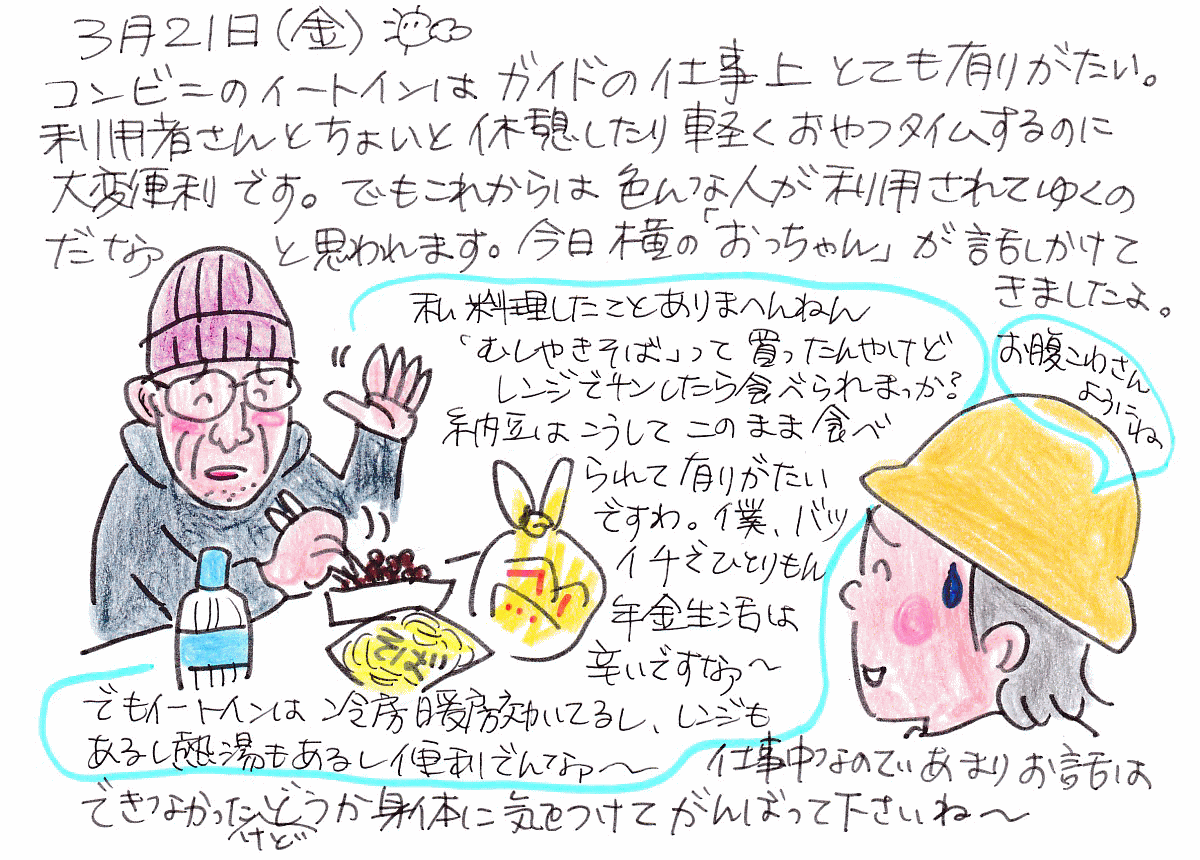 3月21日(金)
コンビニのイートインはガイドの仕事上とても有りがたい。
利用者さんとちょいと休憩したり軽くおやつタイムするのに
大変便利です。でもこれからは色んな人が利用されてゆくの
だなァ と思われます。今日横の「おっちゃん」が話しかけて
きましたよ。
私料理したことありまへんねん
「むしやきそば」って買ったんやけど
レンジでチンしたら食べられまっか?
納豆はこうしてこのまま食べ
られて有りがたい
ですわ。僕、バツ
イチでひとりもん
年金生活は
辛いですなァ〜
でもイートインは冷房暖房効いてるし、レンジも
あるし熱湯もあるし便利でんなァ〜
お腹こわさん
ようにね
仕事中なのであまりお話は
できなかったけどどうか身体に気をつけてがんばって下さいね〜